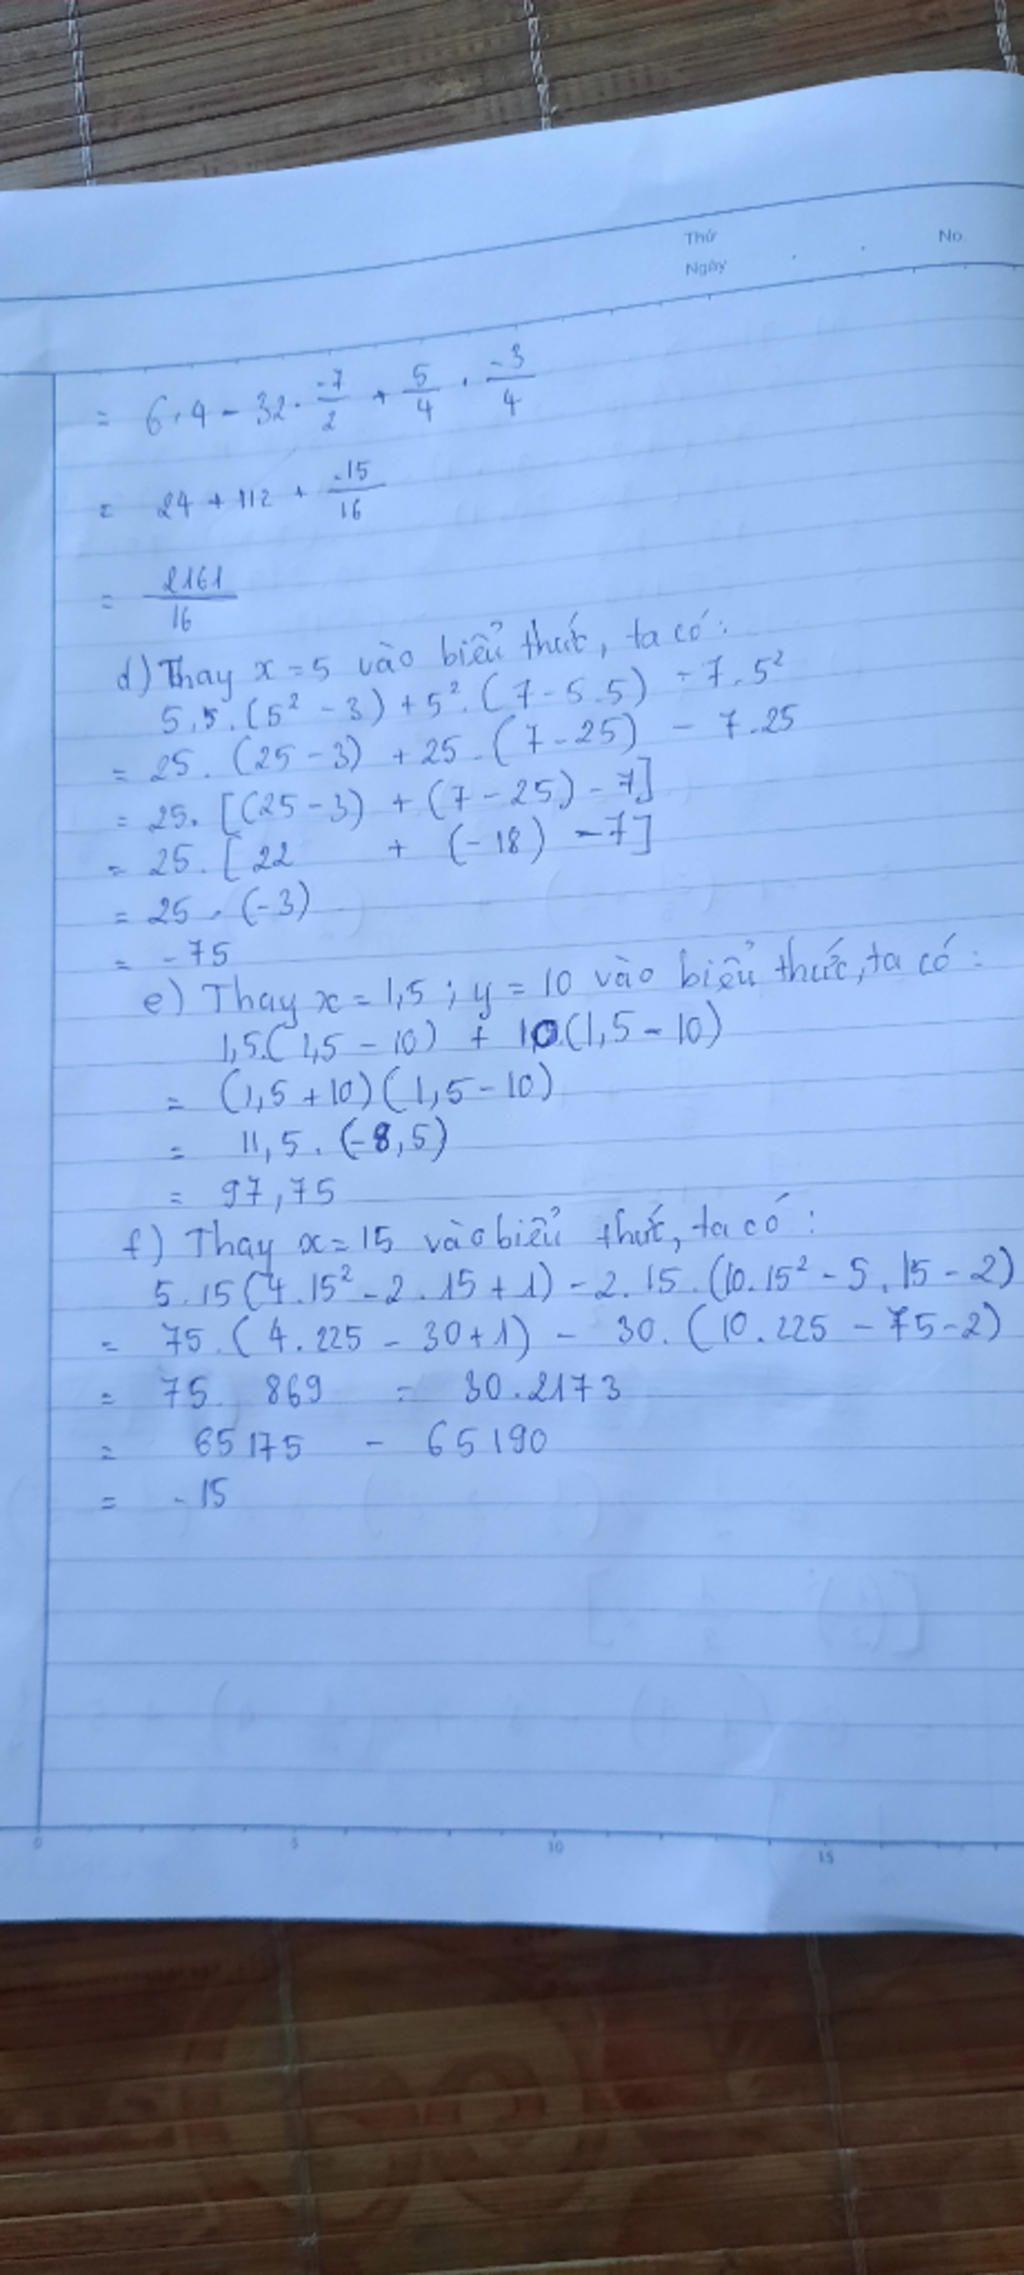 Thứ
No
Ngày
= 6.4 - 32. -7/2 + 5/4 . -3/4
= 24 + 112 + -15/16
= 2161/16
d) Thay x = 5 vào biểu thức, ta có:
5.5.(5² - 3) + 5².(7 - 5.5) - 7.5²
= 25. (25 - 3) + 25. (7 - 25) - 7.25
= 25. [(25 - 3) + (7 - 25) - 7]
= 25. [22 + (-18) - 7]
= 25 . (-3)
= -75
e) Thay x = 1,5 ; y = 10 vào biểu thức, ta có:
1,5.(1,5 - 10) + 10.(1,5 - 10)
= (1,5 + 10)(1,5 - 10)
= 11,5 . (-8,5)
= 97,75
f) Thay x = 15 vào biểu thức, ta có:
5.15(4.15² - 2.15 + 1) - 2.15.(10.15² - 5.15 - 2)
= 75.(4.225 - 30 + 1) - 30.(10.225 - 75 - 2)
= 75. 869 - 30.2173
= 65175 - 65190
= -15
0 5 10 15